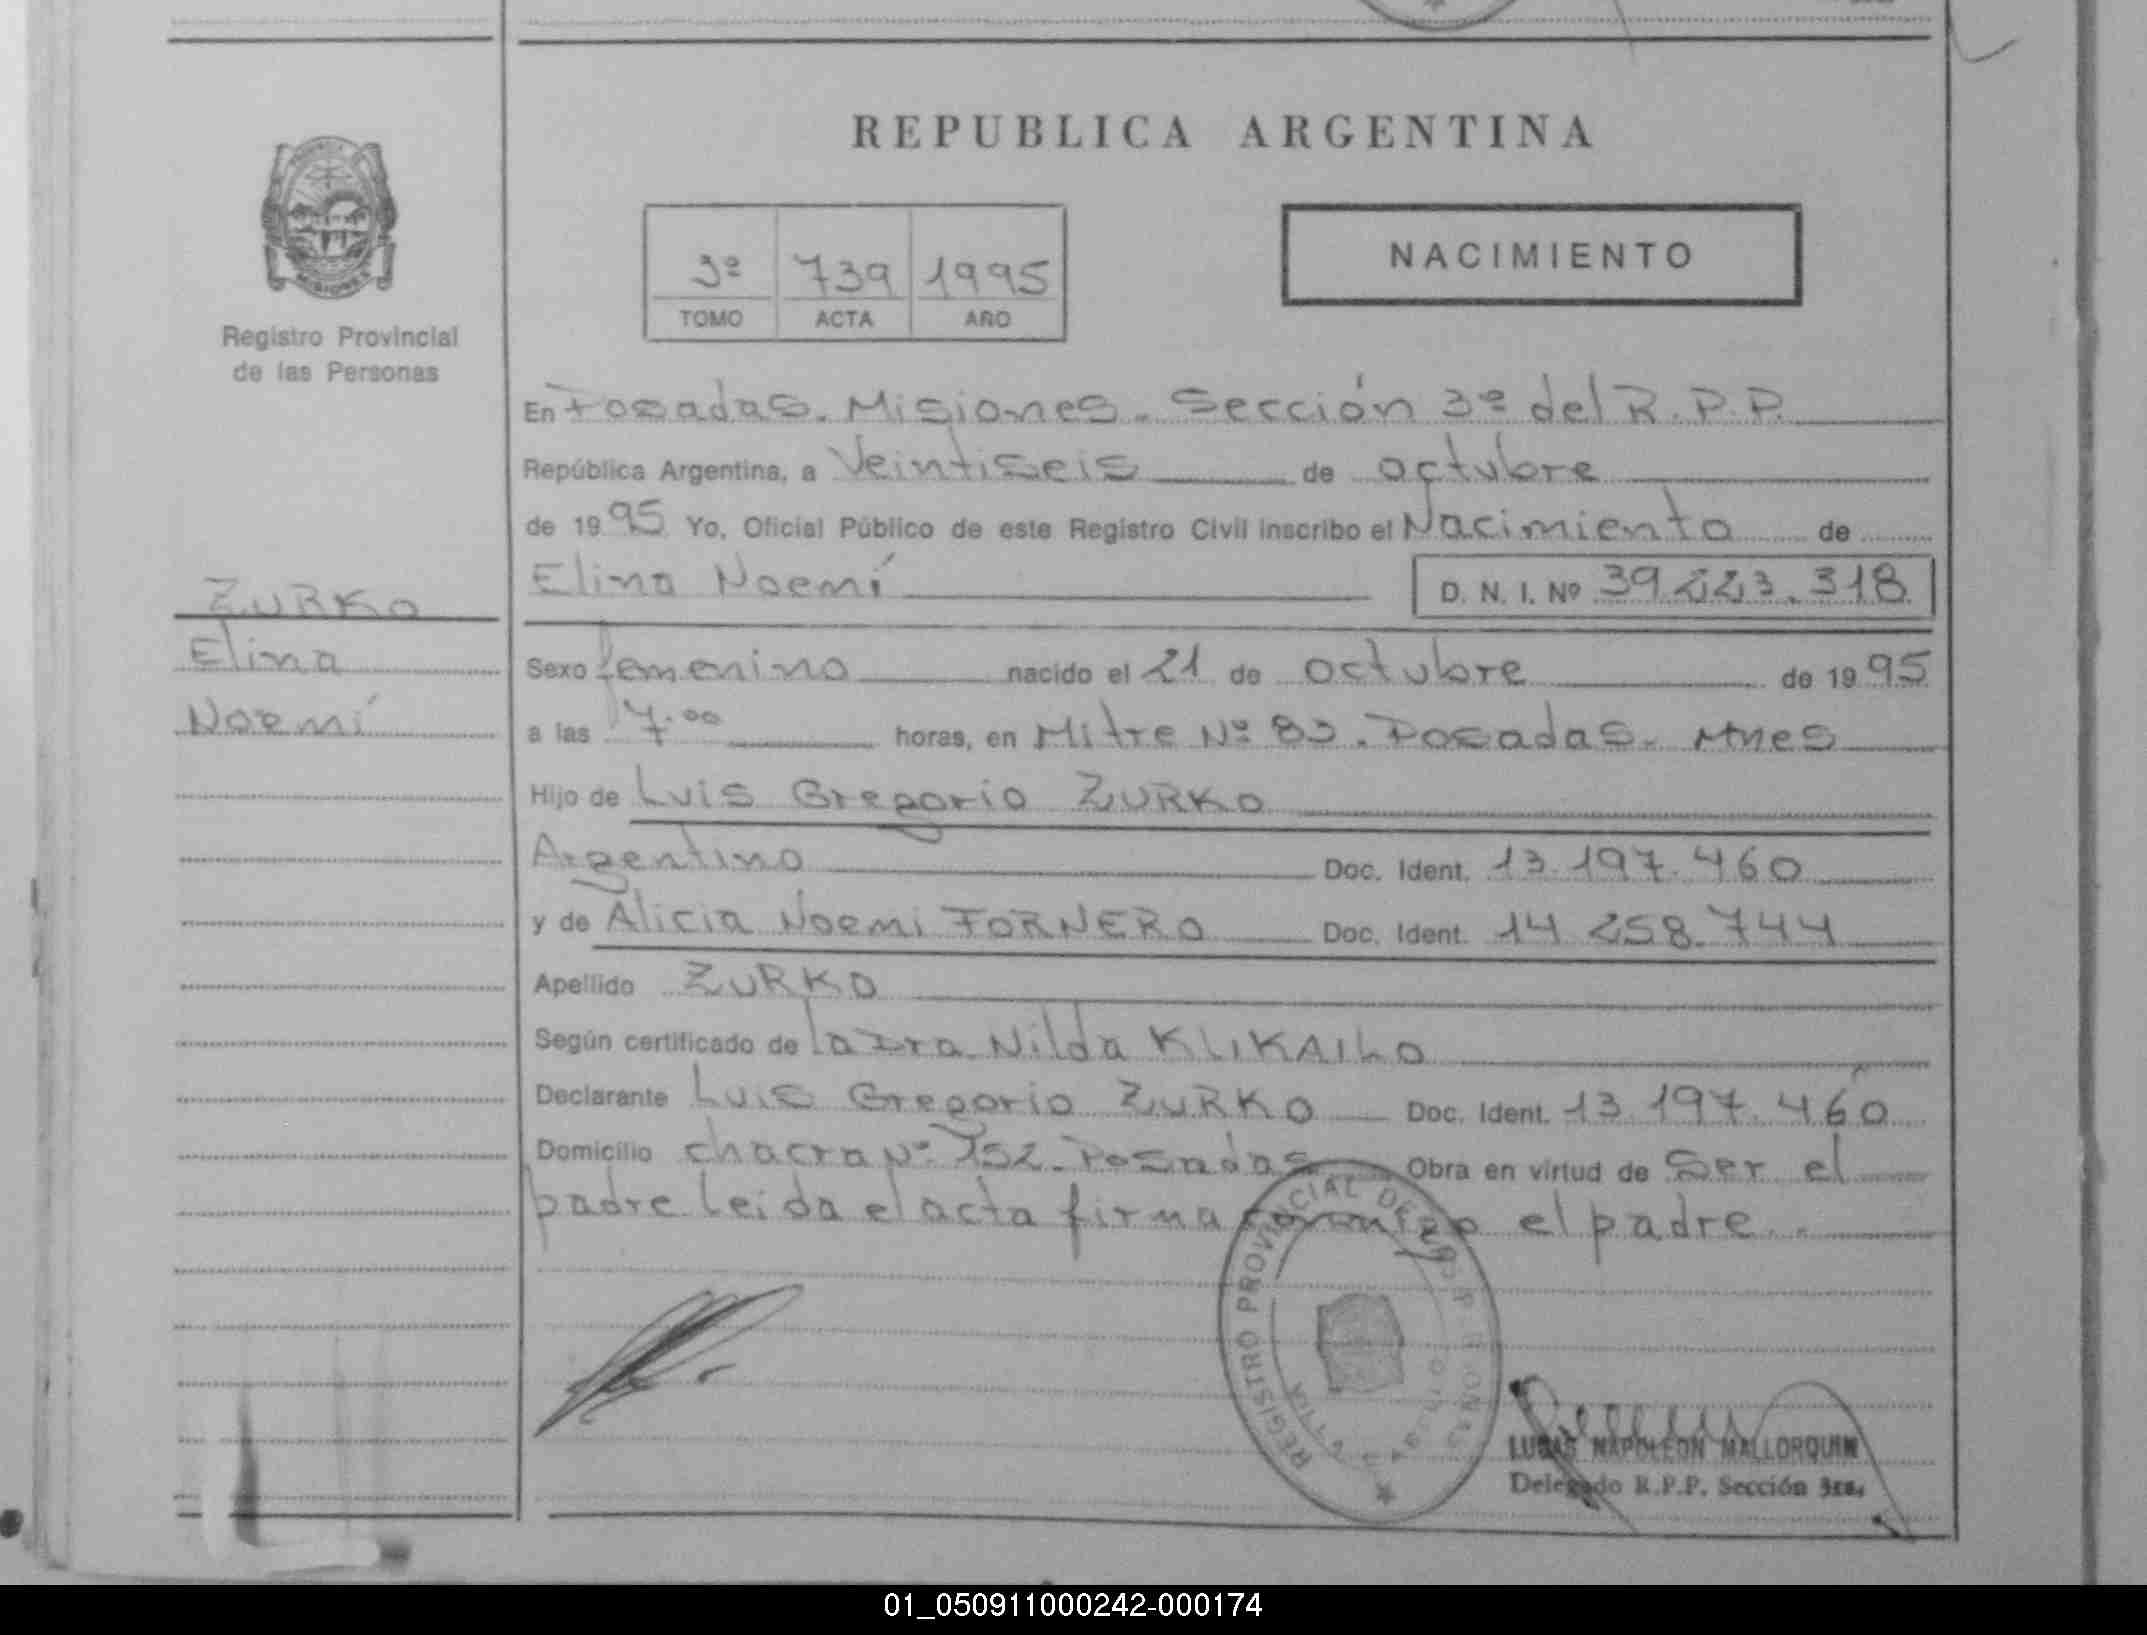 REPUBLICA ARGENTINA
NACIMIENTO
3º 739 1995
TOMO ACTA AÑO
Registro Provincial
de las Personas
En Posadas. Misiones. Sección 3º del R.P.P.
República Argentina, a Veintiseis de octubre
de 1995 Yo, Oficial Público de este Registro Civil inscribo el Nacimiento de
Elina Noemí D. N. I. Nº 39.223.318
ZURKO
Elina
Noemí
Sexo femenino nacido el 21 de octubre de 1995
a las 7.00 horas, en Mitre Nº 83. Posadas. Mnes
Hijo de Luis Gregorio ZURKO
Argentino Doc. Ident. 13.197.460
y de Alicia Noemi FORNERO Doc. Ident. 14.258.744
Apellido ZURKO
Según certificado de la Dra. Nilda KLIKAILO
Declarante Luis Gregorio ZURKO Doc. Ident. 13.197.460
Domicilio chacra Nº 152. Posadas Obra en virtud de Ser el
padre Leída el acta firma conmigo el padre.
REGISTRO PROVINCIAL DE LAS PERSONAS
LUCAS NAPOLEON MALLORQUIN
Delegado R.P.P. Sección 3ra.
01_050911000242-000174